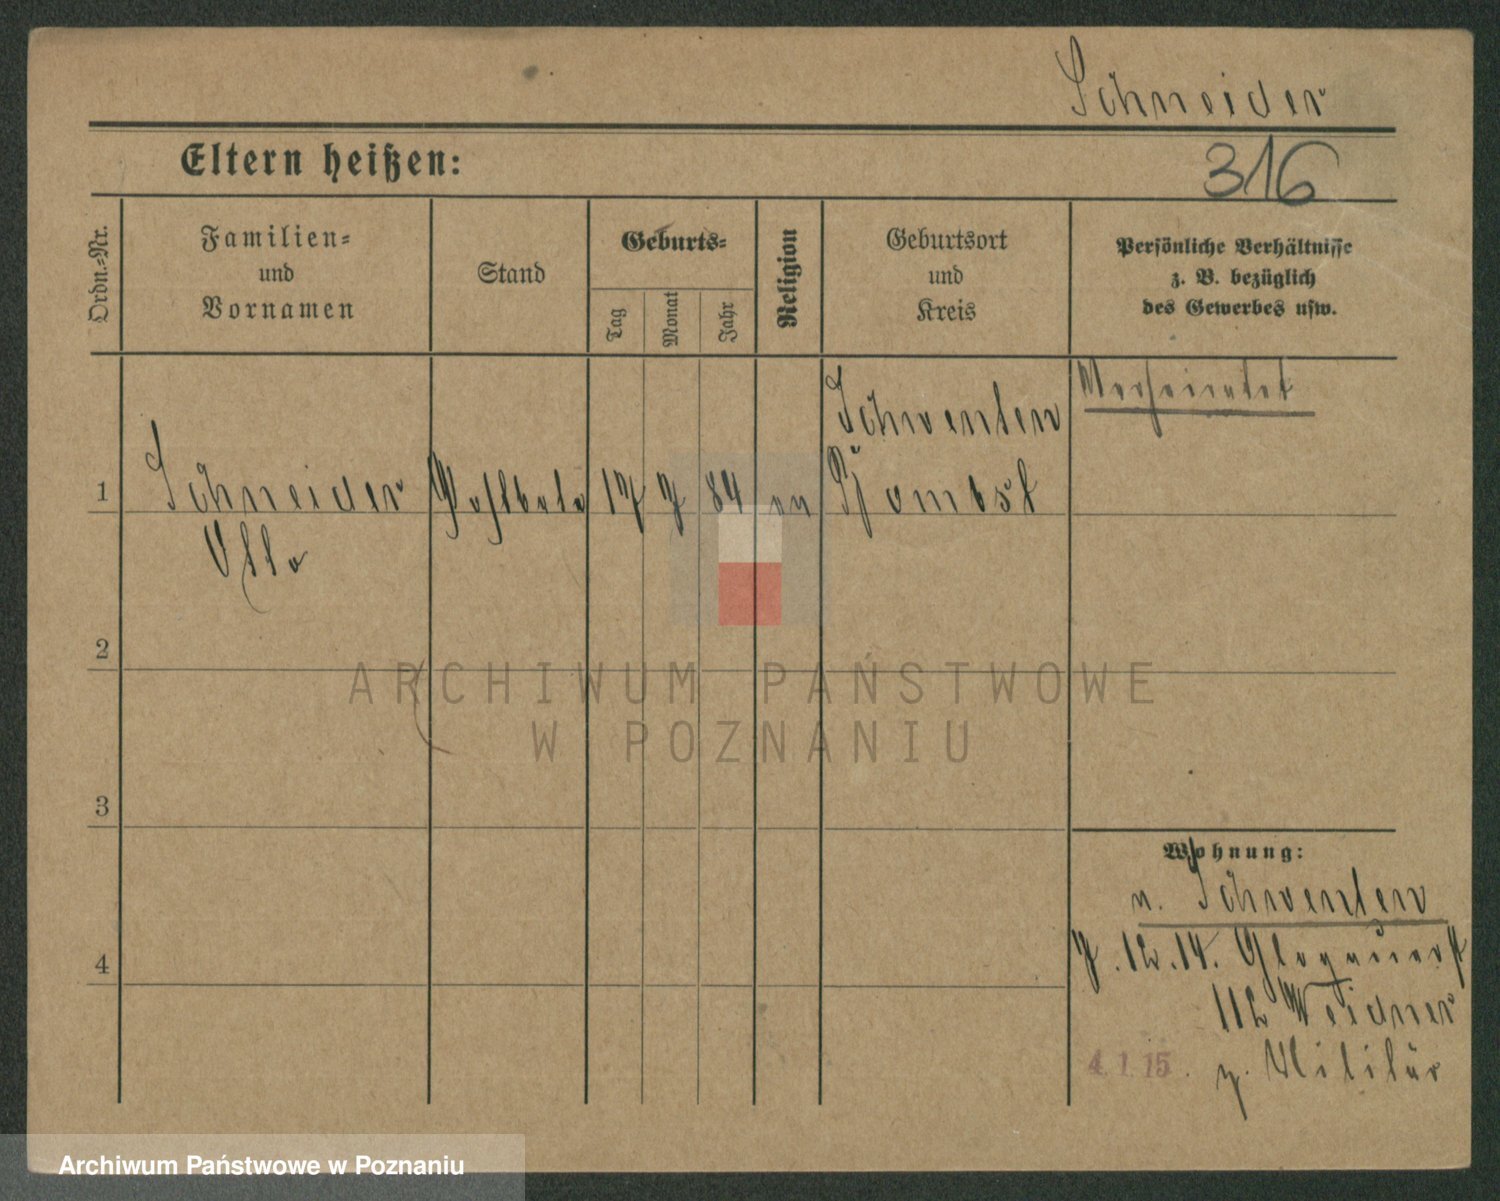 Schneider
Eltern heißen:
316
Ordn.=Nr.
Familien=
und
Vornamen
Stand
Geburts=
Tag
Monat
Jahr
Religion
Geburtsort
und
Kreis
Persönliche Verhältnisse
z. B. bezüglich
des Gewerbes usw.
Verheiratet
Schwenten
1
Schneider
17 7 84 ev
Bomst
Otto
2
ARCHIWUM PAŃSTWOWE
W POZNANIU
3
Wohnung:
n. Schwenten
4
7.12.14. Glogauerst
112 Weidner
4.1.15. z. Militär
Archiwum Państwowe w Poznaniu